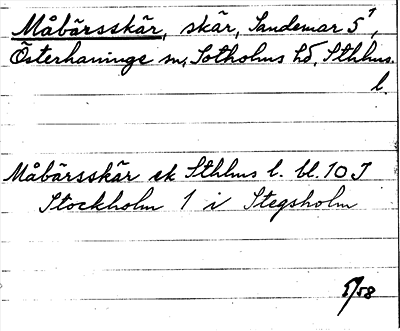 Måbärsskär, skär, Sandemar 5¹,
Österhaninge sn, Sotholms hd, Sthlms
l.
Måbärsskär ek Sthlms l. bl. 10 J
Stockholm 1 i Stegsholm
5/58